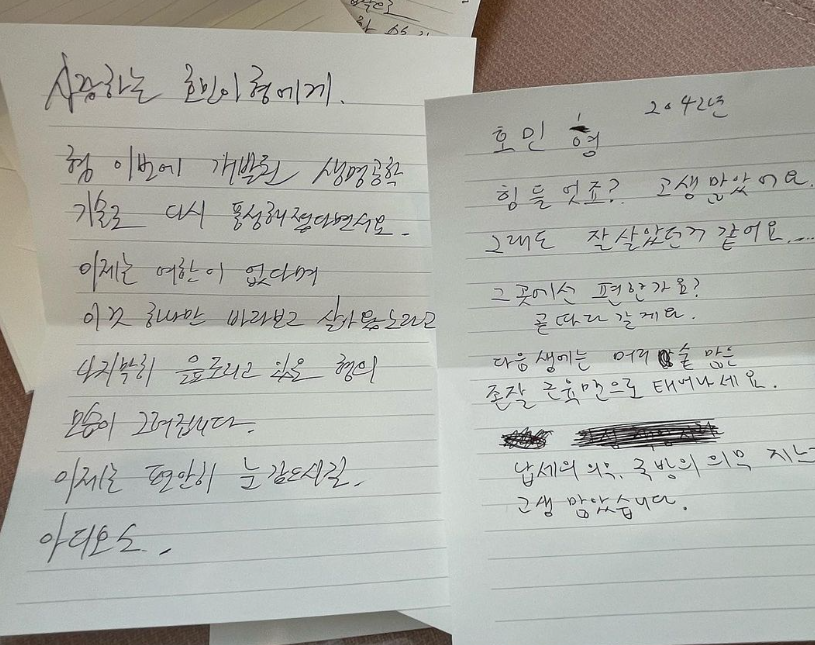 사랑하는 호민이형에게.
형 이번에 개발된 생명공학
기술로 다시 풍성해졌다면서요.
이제는 여한이 없다며
이것 하나만 바라보고 살아왔노라고
나지막히 읊조리고 있을 형의
모습이 그려집니다.
이제는 편안히 눈감으시길.
아디오스.
2042년
호민 형
힘들엇죠? 고생 많았어요.
그래도 잘 살았던거 같아요....
그곳에선 편한가요?
곧 따라 갈게요.
다음생에는 머리 숱 많은
존잘 근육맨으로 태어나세요.
납세의 의무, 국방의 의무 지느
고생 많았습니다.